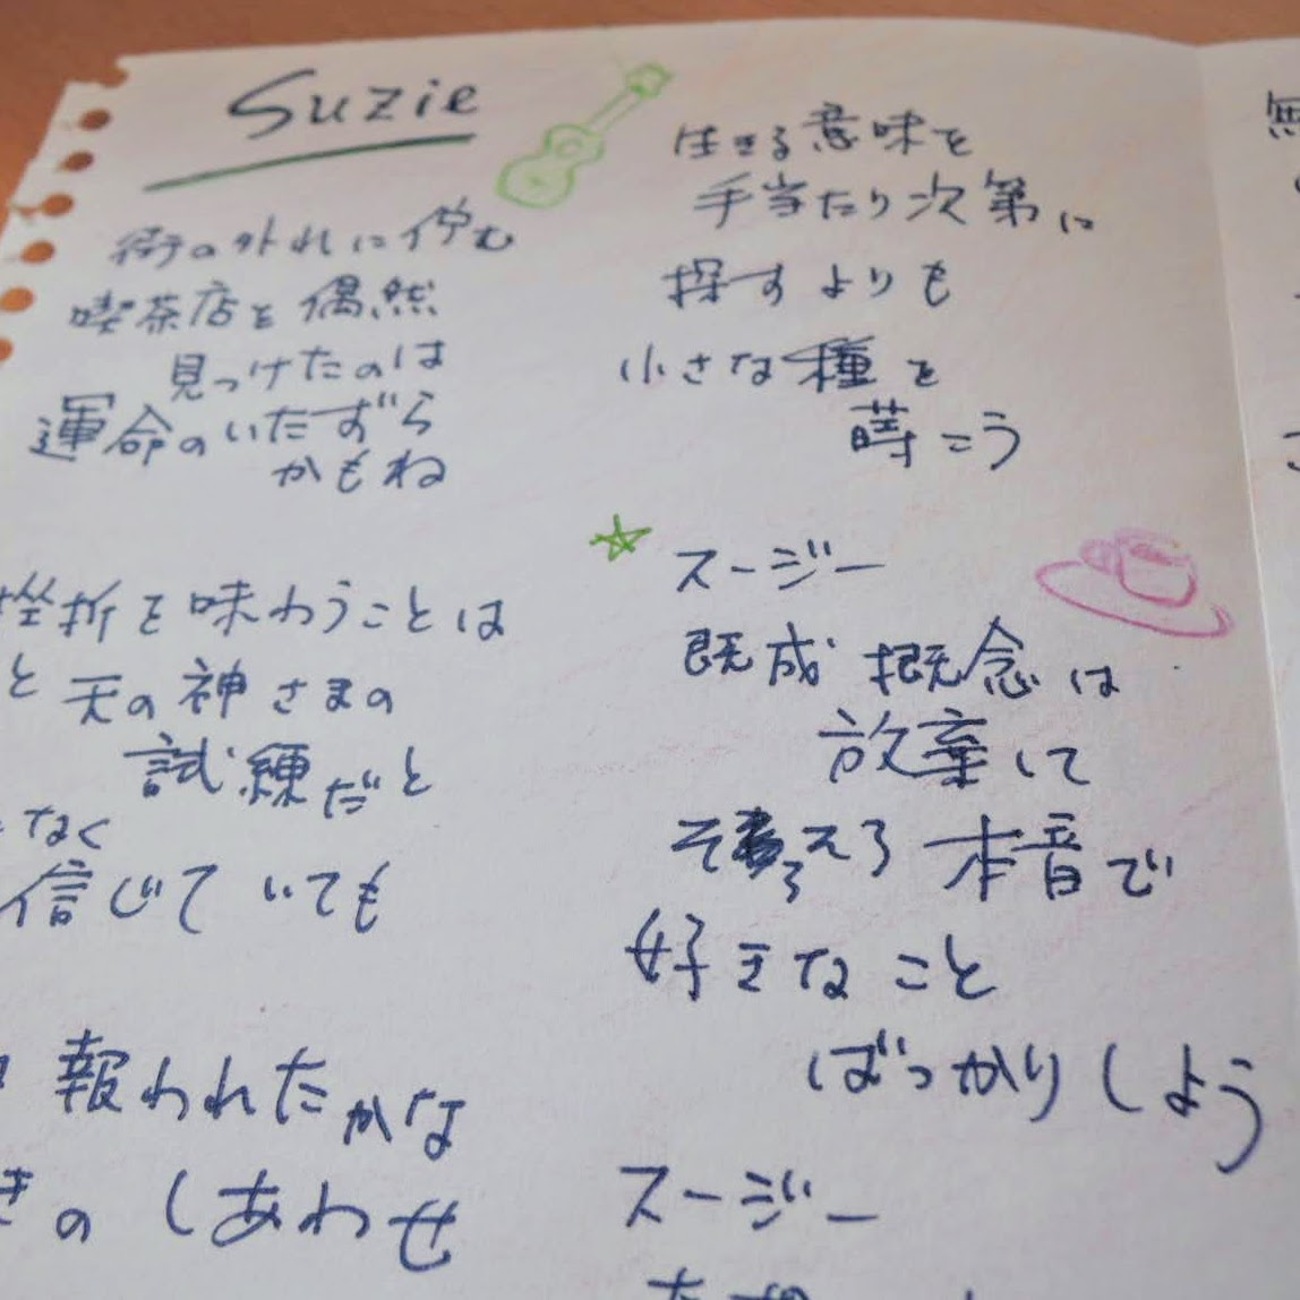 Suzie
街の外れに佇む
喫茶店を偶然
見つけたのは
運命のいたずら
かもね
挫折を味わうことは
と天の神さまの
試練だと
なく
信じていても
報われたかな
きの しあわせ
生きる意味を
手当たり次第に
探すよりも
小さな種を
蒔こう
スージー
既成概念は
放棄して
そろえろ本音で
好きなこと
ばっかりしよう
スージー